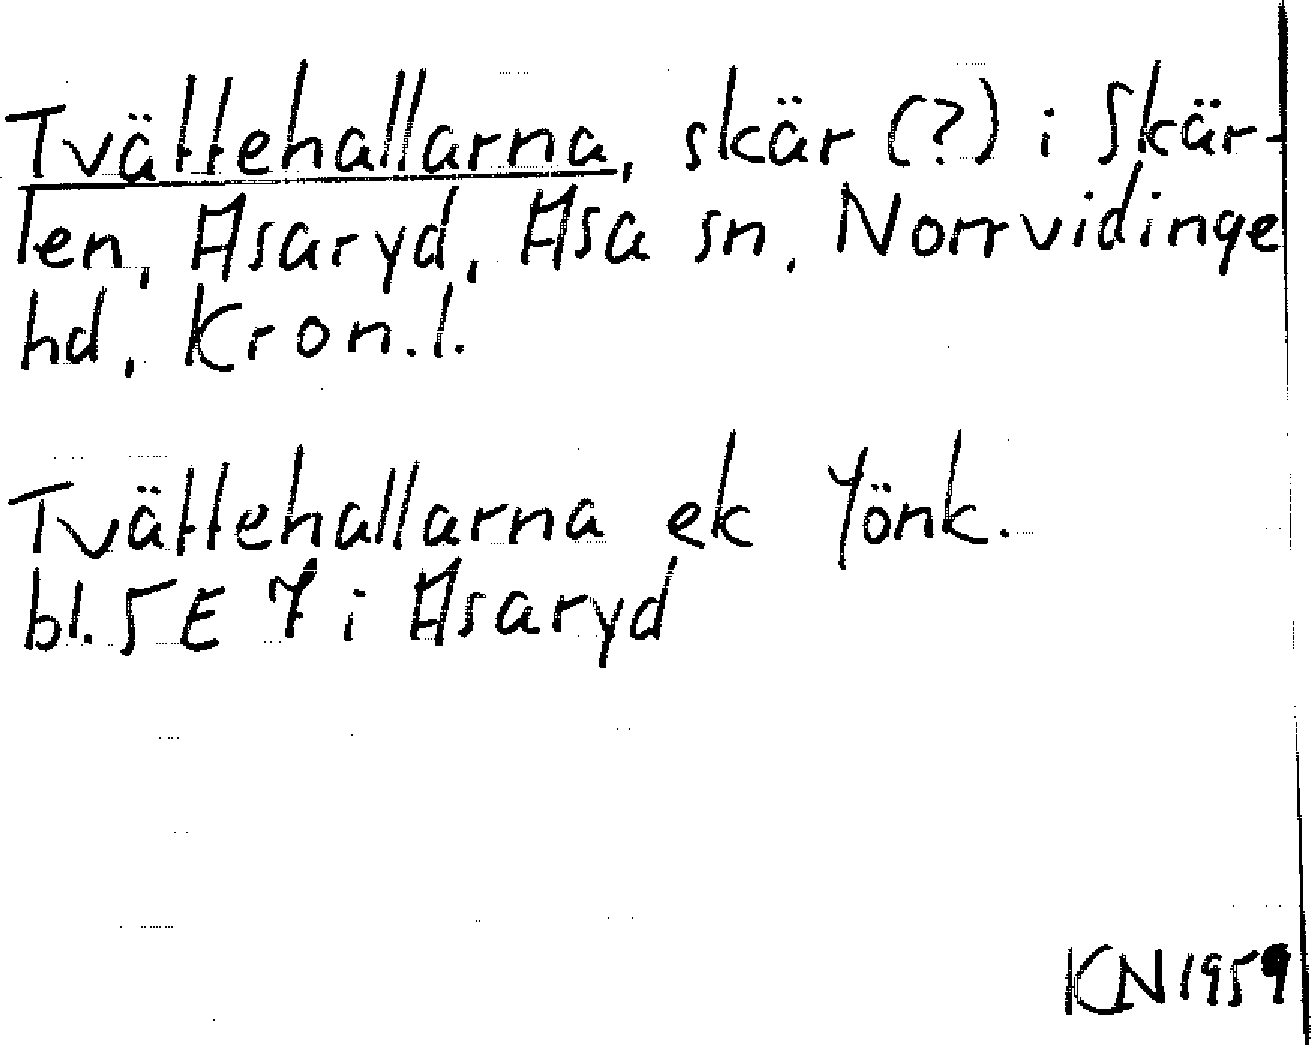 Tvättehallarna, skär (?) i Skär-
len, Asaryd, Asa sn, Norrvidinge
hd, Kron.l.
Tvättehallarna ek Jönk.
bl. 5 E 7 i Asaryd
KN 1959